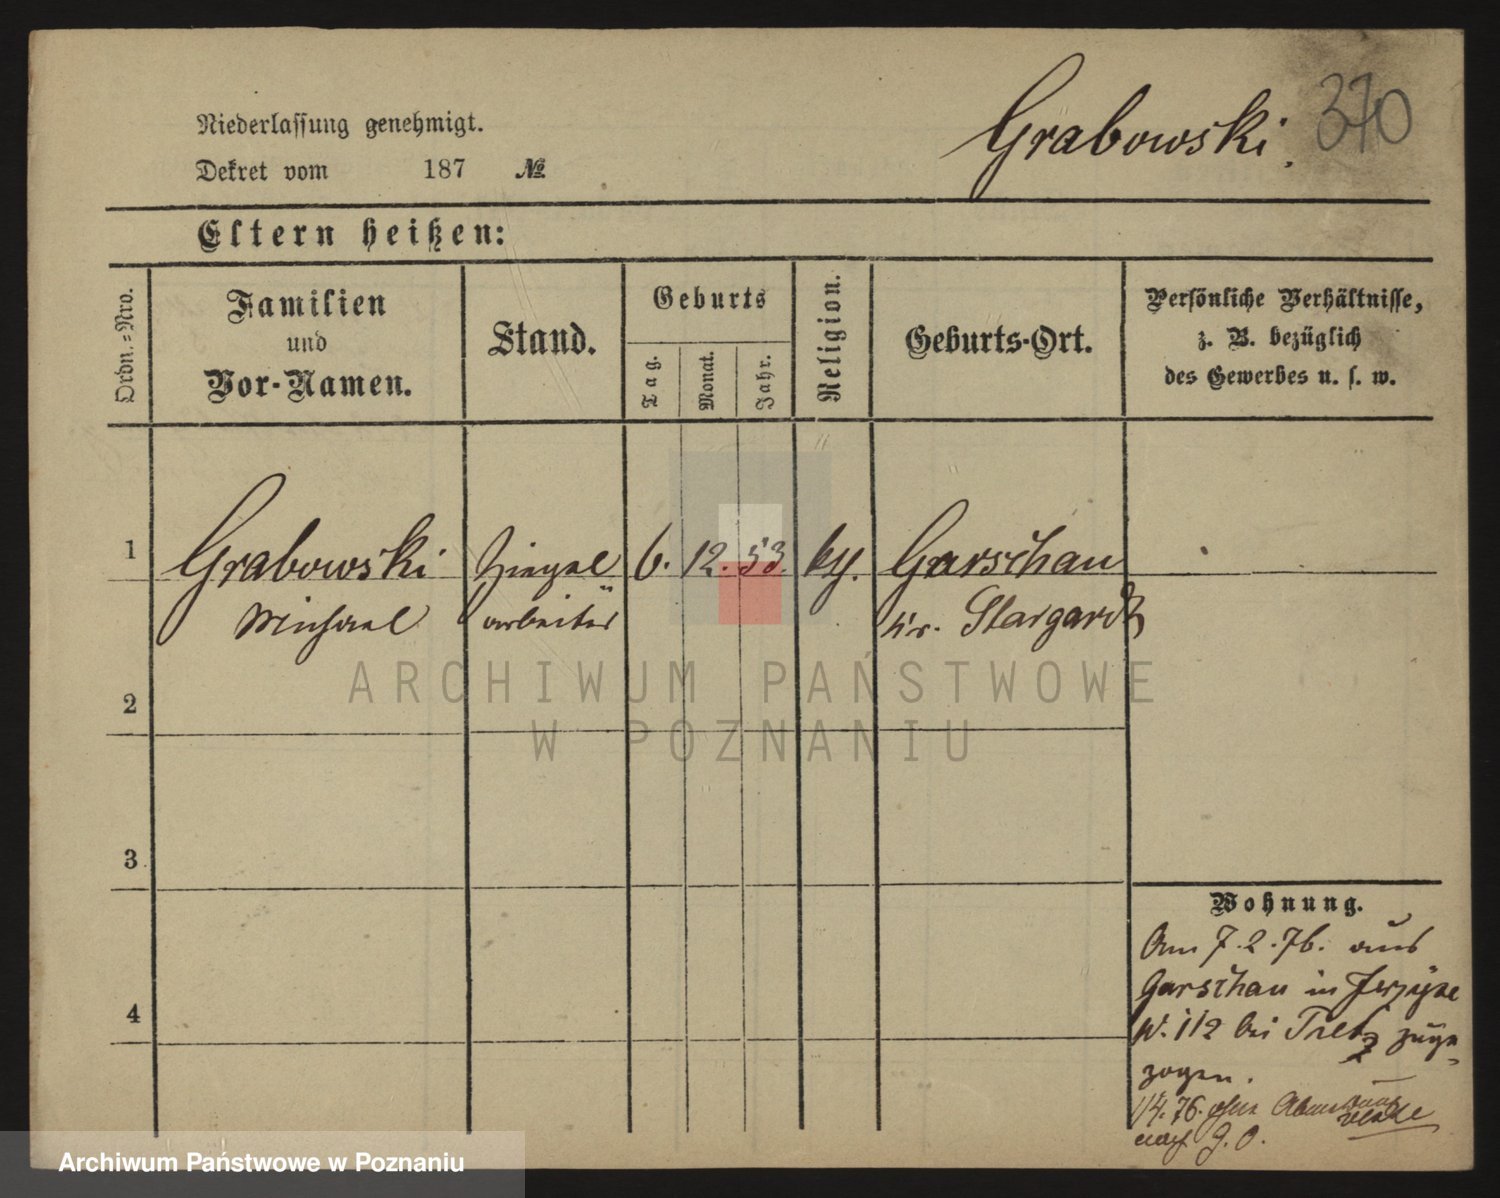 Grabowski.
370
Niederlassung genehmigt.
Dekret vom 187 №
Eltern heißen:
Ordn.=Nro.
Familien
und
Vor-Namen.
Stand.
Geburts
Tag.
Monat.
Jahr.
Religion.
Geburts-Ort.
Persönliche Verhältnisse,
z. B. bezüglich
des Gewerbes u. s. w.
1
Grabowski
Michael
Ziegel
arbeiter
6. 12. 53.
Garschau
Kr. Stargardt
2
3
4
Wohnung.
Am 7.2.76. aus
Garschau in
N. 112 bei zuge-
zogen.
1/4. 76. ohne
nach
ARCHIWUM PAŃSTWOWE
W POZNANIU
Archiwum Państwowe w Poznaniu